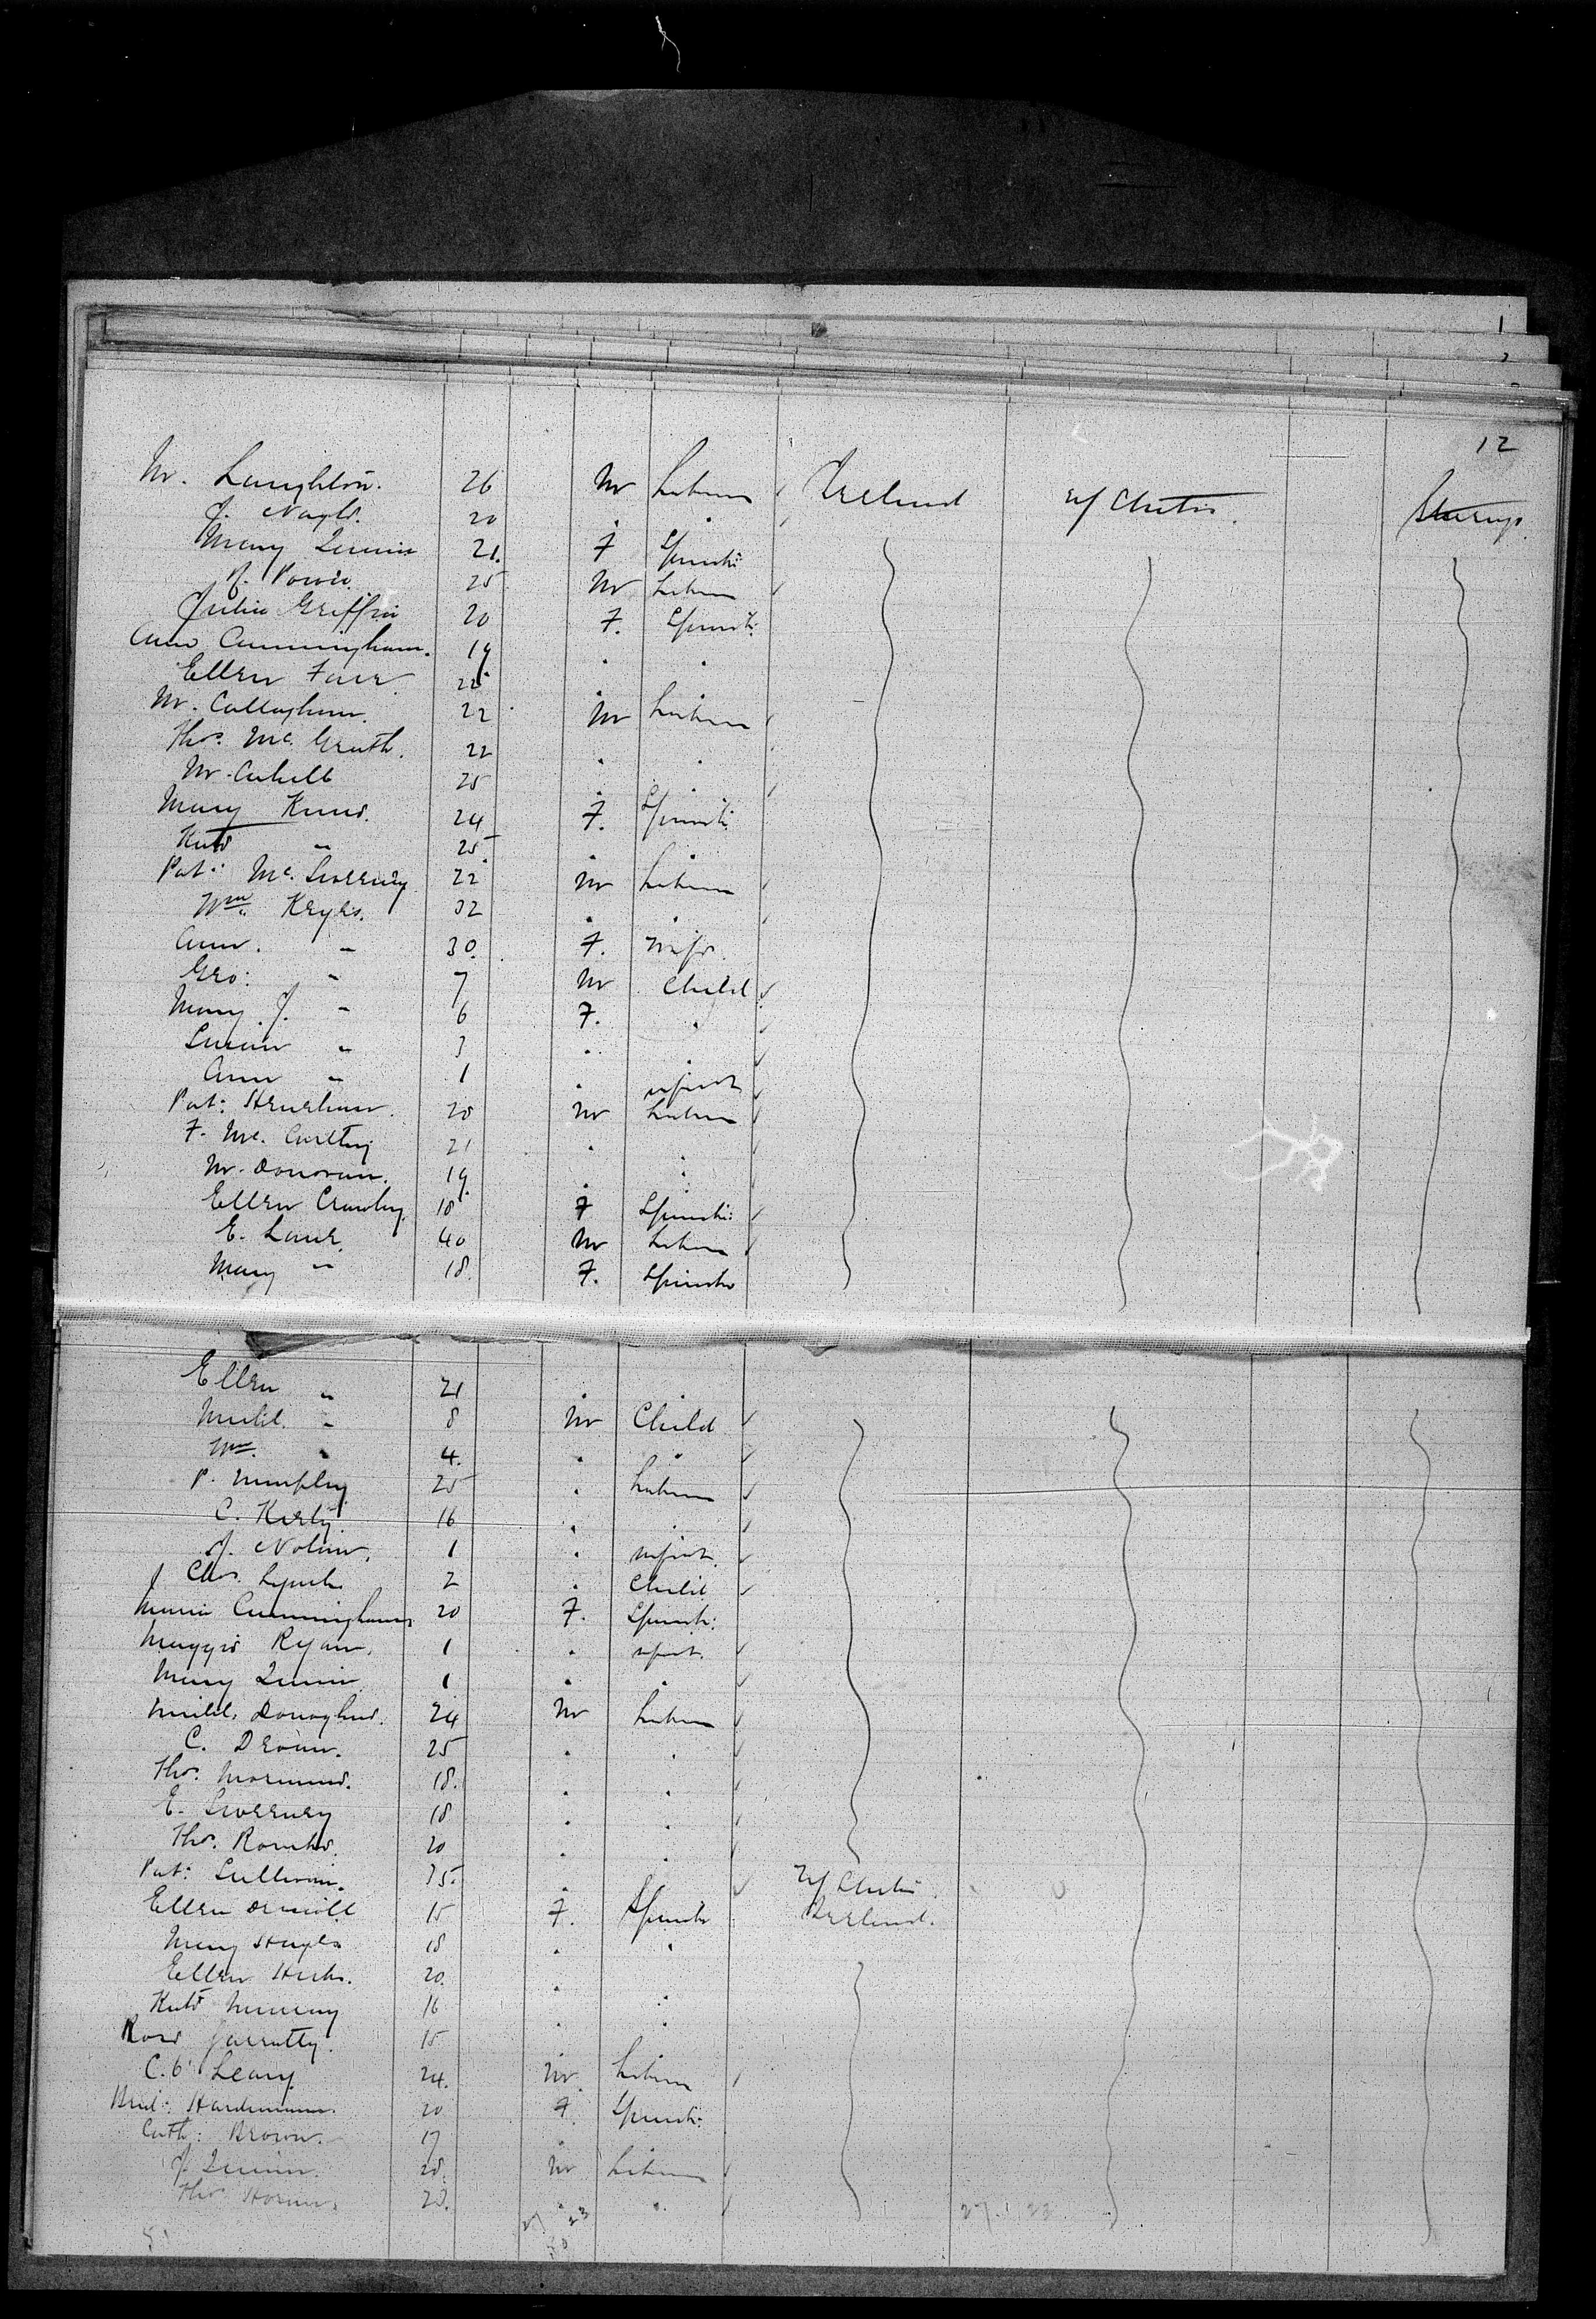 12
M. Laughlon. 26 M Labour Ireland U/ States Steerage
J. Nagle. 20 . .
Mary Quinn 21. F Spinstr:
J. Power. 25 M Labour
Julia Griffin 20 F. Spinstr:
Anne Cunningham. 19 . .
Ellen Farr. 22 . .
M. Callaghan. 22 M Labour
Thos. Mc. Grath. 22 . .
M. Cahill 25 . .
Mary Kane. 24 F. Spinstr:
Kate " 25 . .
Pat: Mc. Sweeney 22 M Labour
Wm. Keyes. 32 . .
Ann. " 30. F. Wife.
Geo: " 7 M Child
Mary J. " 6 F. .
Susan " 3 . .
Ann " 1 . infant
Pat: Henehan. 20 M Labour
F. Mc. Carthy 21 . .
M. Donovan. 19. . .
Ellen Crowley. 18 F Spinstr:
E. Lane. 40 M Labour
Mary " 18. F. Spinstr
Ellen " 21 . .
Michl. " 8 M Child
Wm. " 4. . .
P. Murphy 25 . Labour
C. Kirby. 16 . .
J. Nolan. 1 . infant.
Chas. Lynch. 2 . Child
Maria Cunningham 20 F. Spinstr:
Maggie Ryan. 1 . infant.
Mary Quinn. 1 . .
Michl. Donoghue. 24 M Labour
C. 25 . .
Thos. 18. . .
E. Sweeney 18 . .
Thos. 20 . .
Pat: Sullivan. 35. . . U/ States
Ellen Driscoll 15 F. Spinstr Ireland.
Mary Hayes 18 . .
Ellen Hicks. 20. . .
Kate Murray 16 . .
Rose Garratty. 15
C. O' Leary. 24. M. Labour
Brid: Hardiman. 20 F. Spinstr:
Cath: Brown. 17 .
J. Quinn. 28. M Labour
Thos. 28. . .
27 23 27. 1 22
50
51